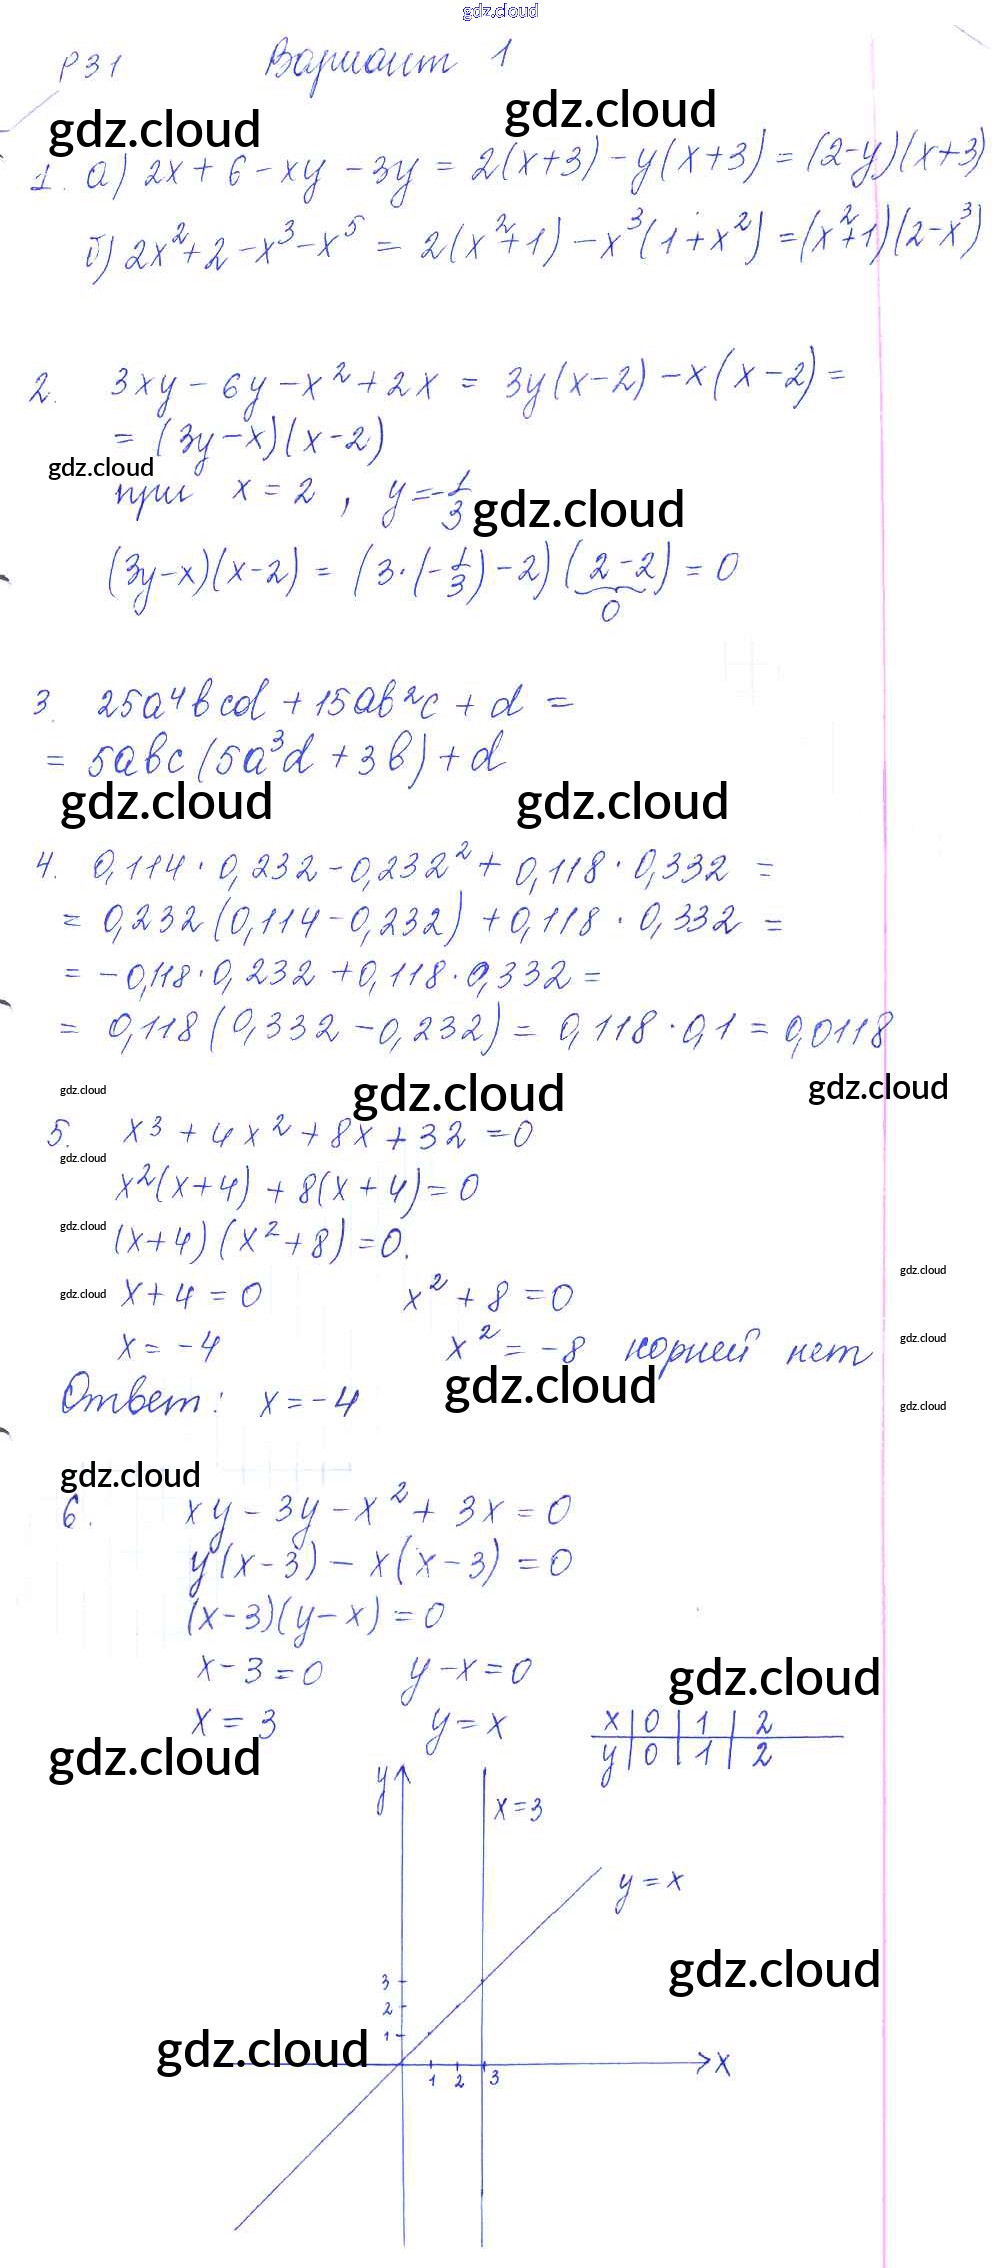 gdz.cloud
Р31 Вариант 1
gdz.cloud gdz.cloud
1. а) 2x + 6 - xy - 3y = 2(x+3) - y(x+3) = (2-y)(x+3)
б) 2x² + 2 - x³ - x⁵ = 2(x²+1) - x³(1+x²) = (x²+1)(2-x³)
2. 3xy - 6y - x² + 2x = 3y(x-2) - x(x-2) =
= (3y-x)(x-2)
gdz.cloud
при x = 2, y = -1/3
gdz.cloud
(3y-x)(x-2) = (3·(-1/3) - 2)(2-2) = 0
0
3. 25a⁴bcd + 15ab²c + d =
= 5abc(5a³d + 3b) + d
gdz.cloud gdz.cloud
4. 0,114 · 0,232 - 0,232² + 0,118 · 0,332 =
= 0,232(0,114 - 0,232) + 0,118 · 0,332 =
= -0,118 · 0,232 + 0,118 · 0,332 =
= 0,118(0,332 - 0,232) = 0,118 · 0,1 = 0,0118
gdz.cloud gdz.cloud gdz.cloud
5. x³ + 4x² + 8x + 32 = 0
gdz.cloud
x²(x+4) + 8(x+4) = 0
gdz.cloud
(x+4)(x²+8) = 0.
gdz.cloud
gdz.cloud
x + 4 = 0 x² + 8 = 0
x = -4 x² = -8 корней нет
gdz.cloud
gdz.cloud
Ответ: x = -4
gdz.cloud
gdz.cloud
6. xy - 3y - x² + 3x = 0
y(x-3) - x(x-3) = 0
(x-3)(y-x) = 0
x - 3 = 0 y - x = 0
gdz.cloud
x = 3 y = x
x 0 1 2
y 0 1 2
gdz.cloud
y
x = 3
y = x
gdz.cloud
3
2
1
gdz.cloud
x
1 2 3